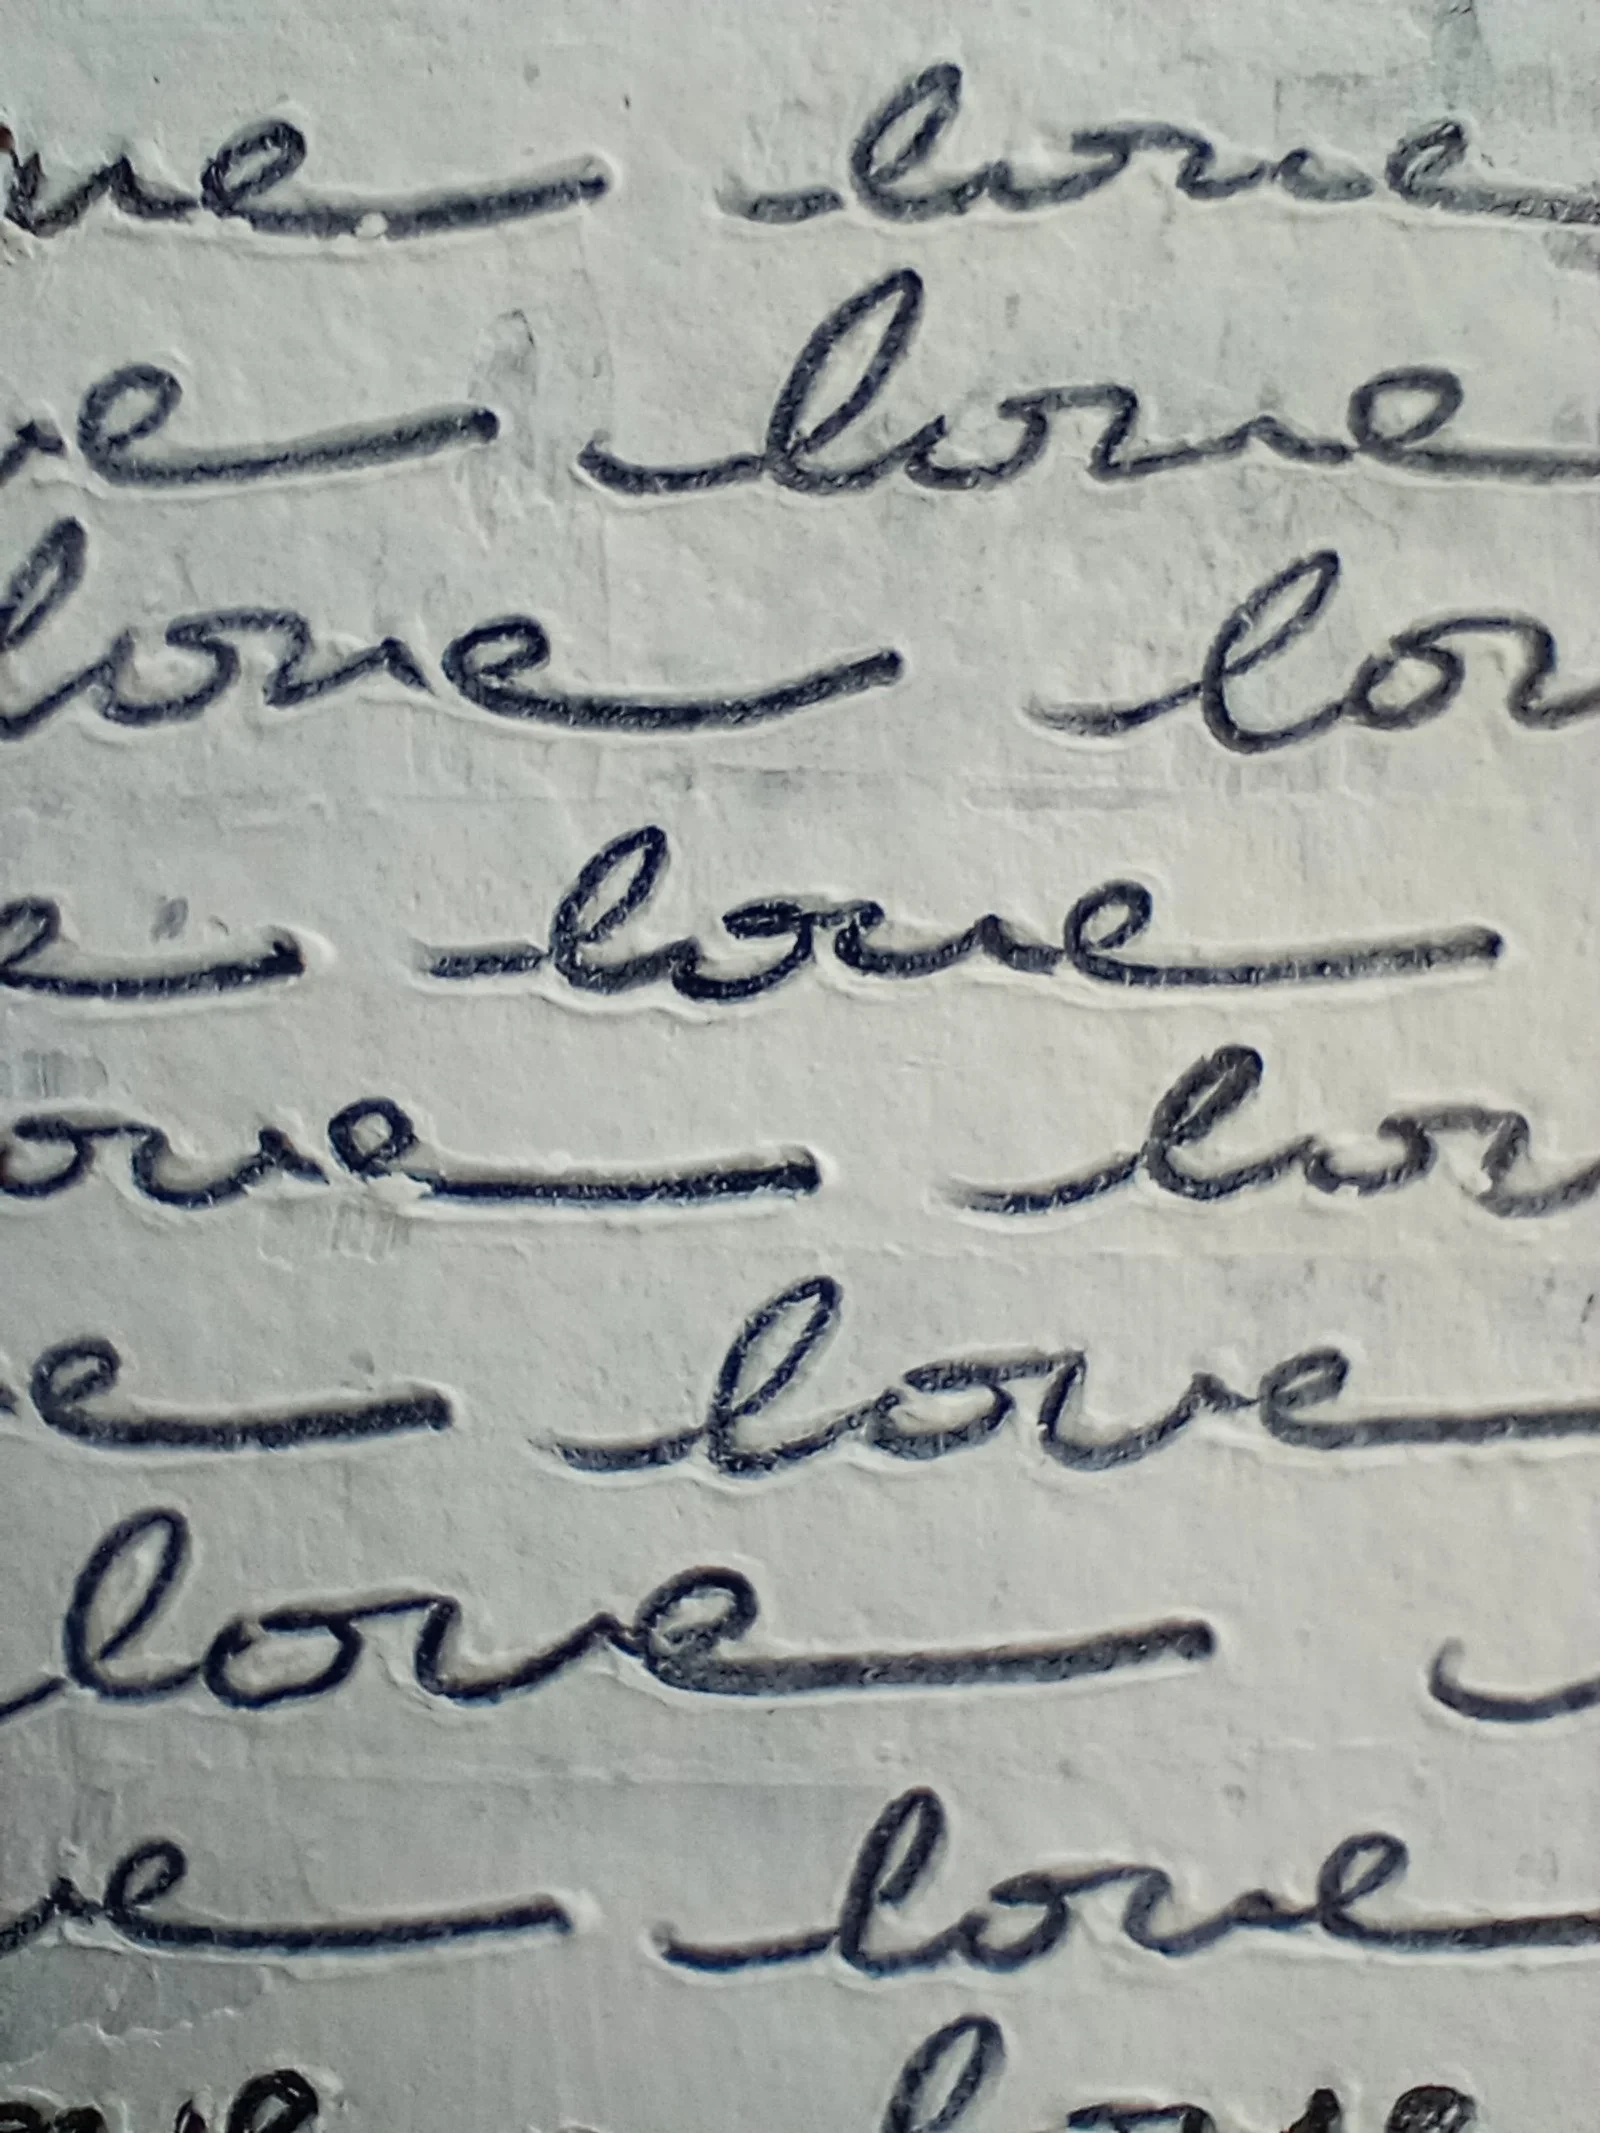 ve love
ve love
love lov
e love
ove lov
e love
love
ve love
ove love